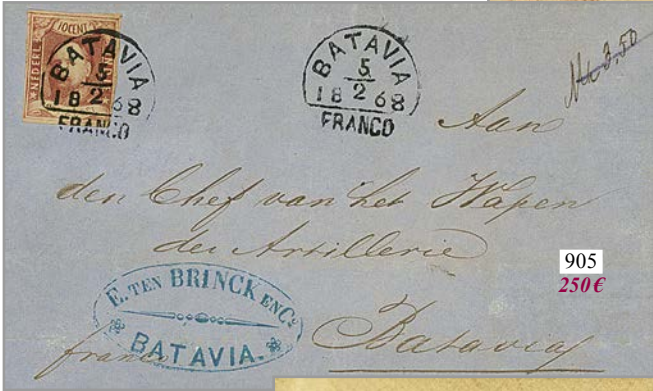 10 CENT
NEDERL
BATAVIA
5
2
18 68
FRANCO
BATAVIA
5
2
18 68
FRANCO
3.50
Aan
den Chef van het Wapen
der Artillerie
905
250€
E. TEN BRINCK EN Co
BATAVIA.
franco
Batavia